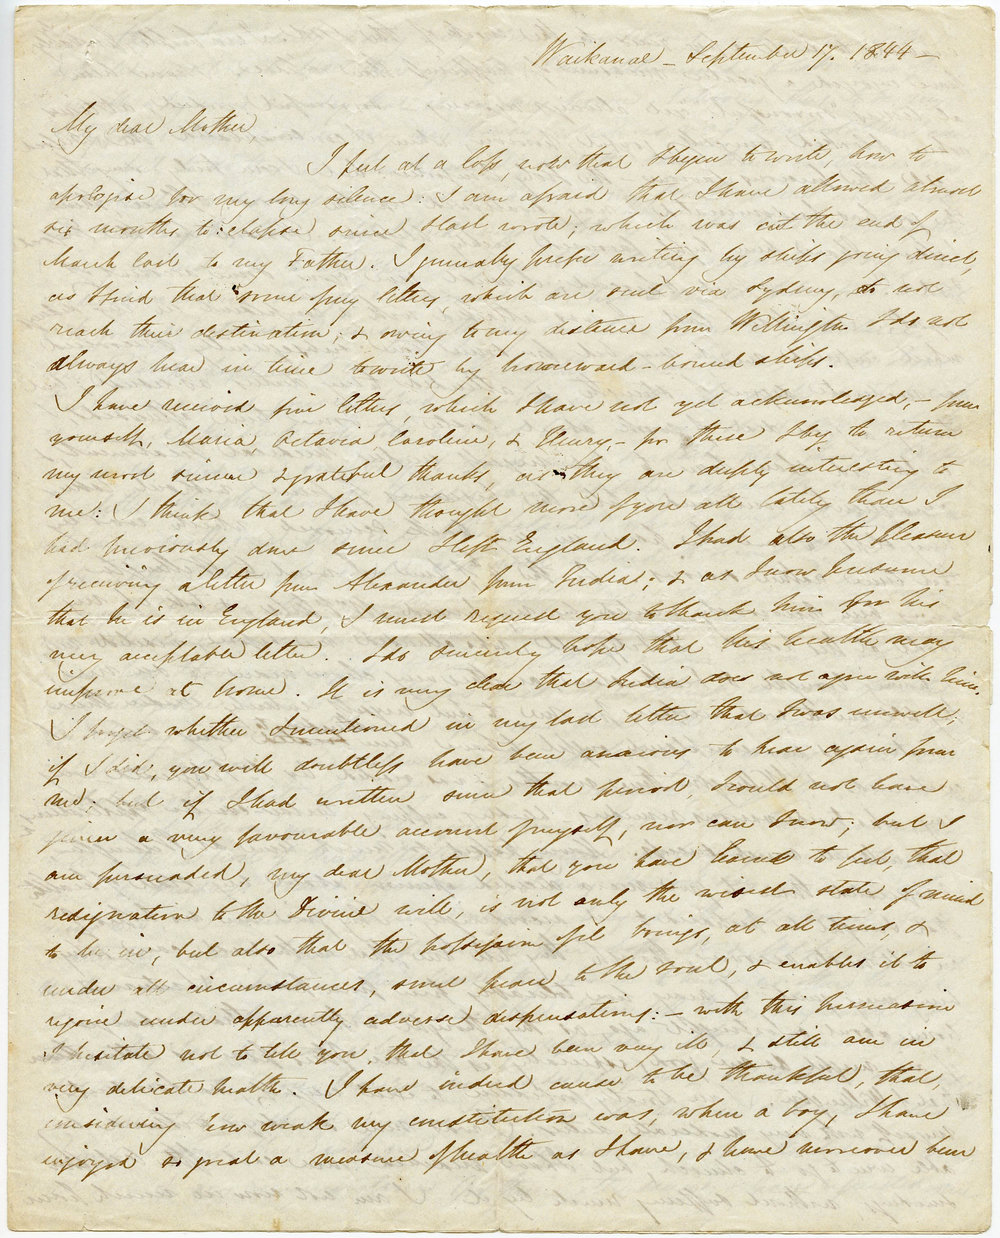 Waikanae – September 17. 1844 –
My dear Mother,
I feel at a loss, now that I begin to write, how to
apologise for my long silence: I am afraid that I have allowed almost
six months to elapse since I last wrote, which was at the end of
March last to my Father. I generally prefer writing by ships going direct,
as I find that some of my letters, which are sent via Sydney, do not
reach their destination; & owing to my distance from Wellington I do not
always hear in time to write by homeward-bound ships.
I have received five letters, which I have not yet acknowledged, – from
yourself, Maria Octavia Caroline, & Henry, – for these I beg to return
my most sincere & grateful thanks, as they are deeply interesting to
me: I think that I have thought more of you all lately than I
had previously done since I left England. I had also the pleasure
of receiving a letter from Alexander from India; & as I now presume
that he is in England, I must request you to thank him for his
very acceptable letter. I do sincerely hope that his health may
improve at home. It is very clear that India does not agree with him.
I forget whether I mentioned in my last letter that I was unwell;
if I did, you will doubtless have been anxious to hear again from
me; but if I had written since that period, I could not have
given a very favourable account of myself, nor can I now; but I
am persuaded, my dear Mother, that you have learnt to feel, that
resignation to the Divine will, is not only the wisest state of mind
to be in, but also that the possession of it brings, at all times, &
under all circumstances, sweet peace to the soul, & enables it to
rejoice under apparently adverse dispensations: – with this persuasion
I hesitate not to tell you, that I have been very ill & still am in
very delicate health. I have indeed cause to be thankful, that,
considering how weak my constitution was, when a boy, I have
enjoyed so great a measure of health as I have, & have moreover been